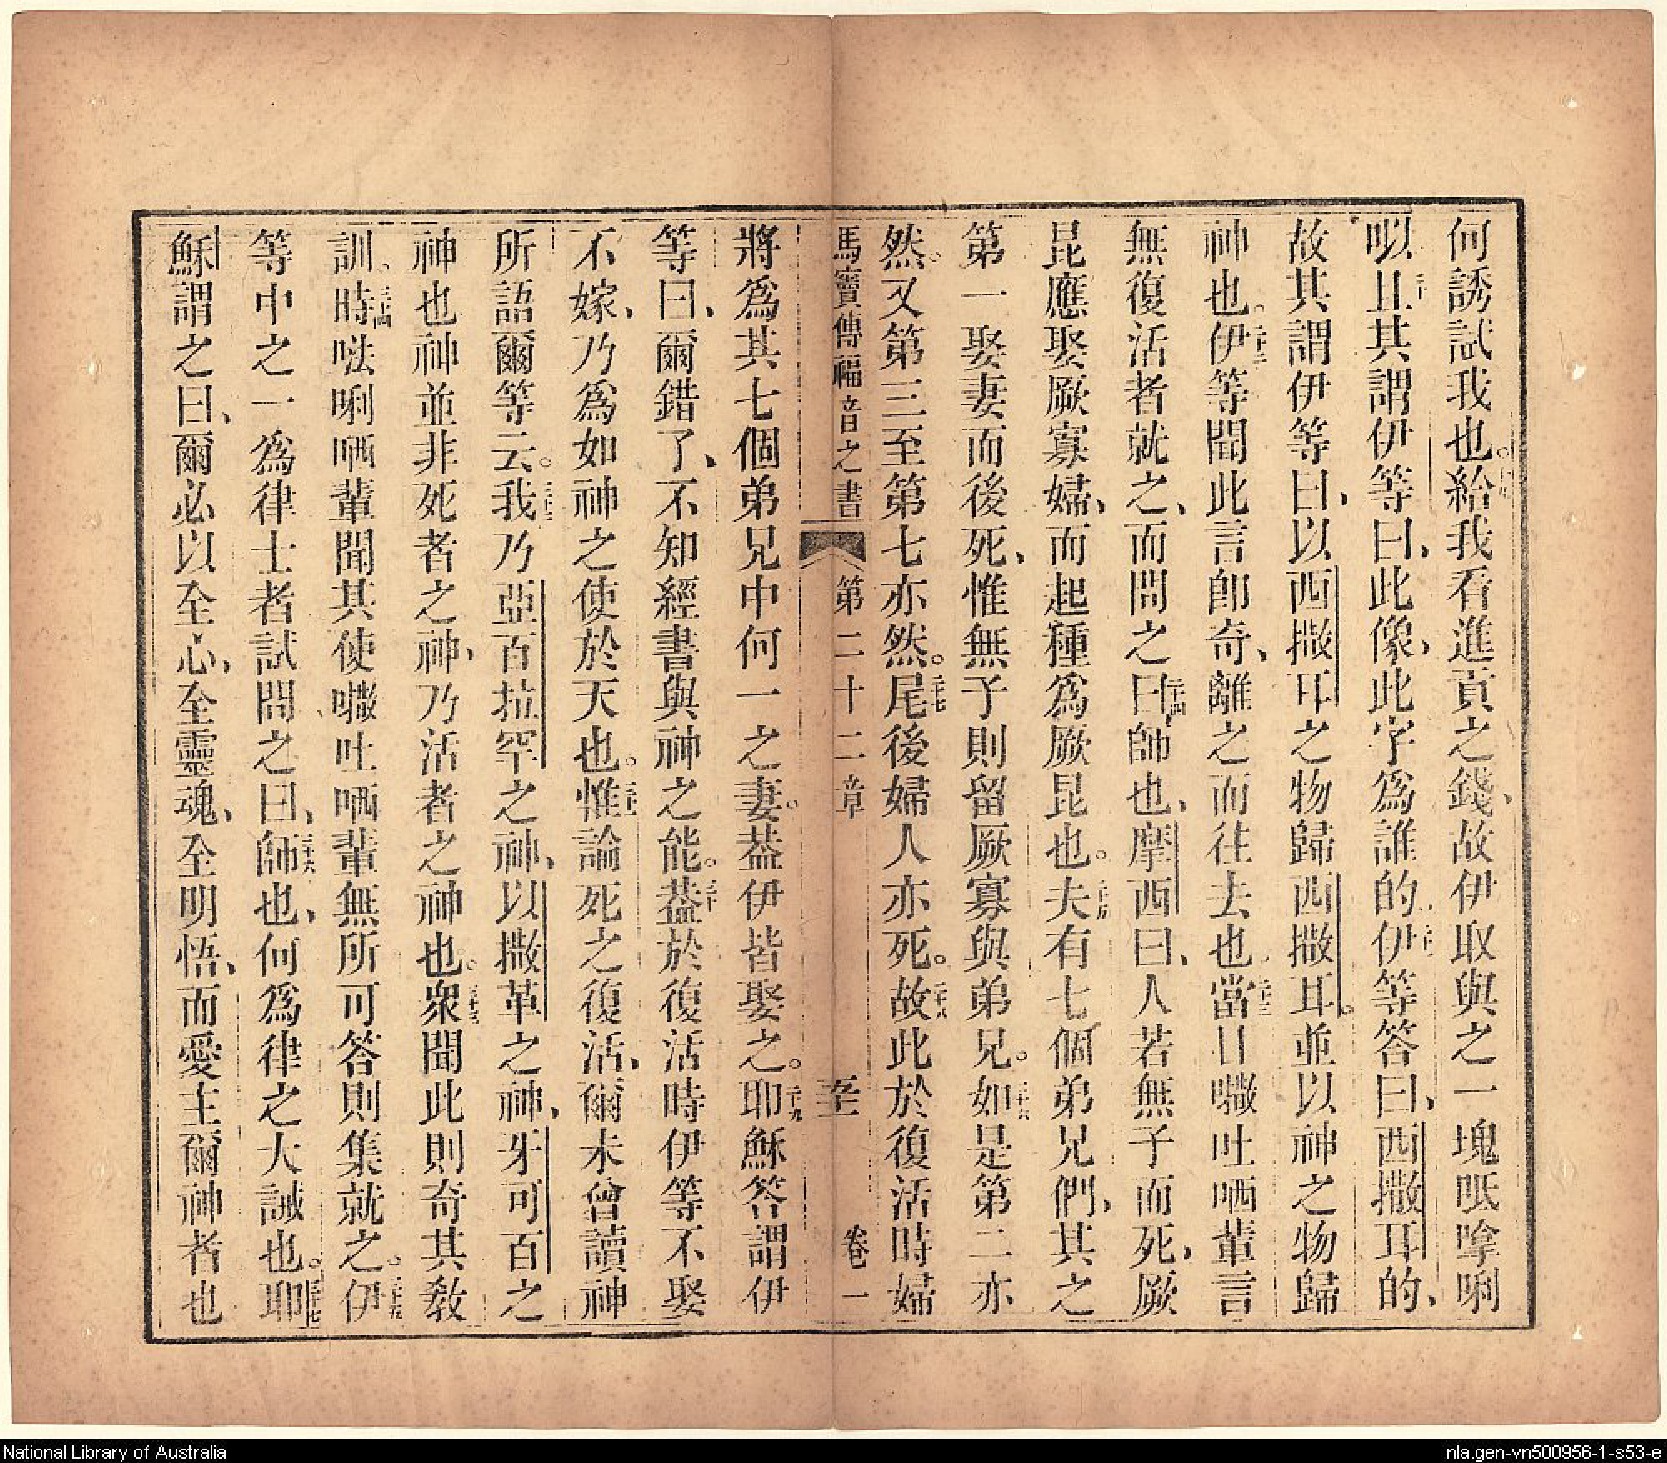 何誘試我也。給我看進貢之錢、故伊取與之一塊呧嗱唎
呎。二十且其謂伊等曰、此像、此字爲誰的。伊等答曰、西撒耳的、
故其謂伊等曰、以西撒耳之物歸西撒耳。並以神之物歸
神也。二十二伊等聞此言卽奇、離之而往去也。二十三當日㘔吐哂輩言
無復活者就之、而問之二十四曰師也、摩西曰、人若無子而死、厥
昆應娶厥寡婦、而起種爲厥昆也。二十五夫有七個弟兄們、其之
第一娶妻而後死、惟無子則留厥寡與弟兄。二十六如是第二亦
然。又第三至第七亦然。二十七尾後婦人亦死。二十八故此於復活時婦
馬竇傳福音之書 第二十二章 卷一
將爲其七個弟兄中何一之妻。葢伊皆娶之。二十九耶穌答謂伊
等曰、爾錯了、不知經書與神之能。三十葢於復活時伊等不娶
不嫁、乃爲如神之使於天也。三十一惟論死之復活、爾未曾讀神
所語爾等云。三十二我乃亞百拉罕之神、以撒革之神、牙可百之
神也神並非死者之神、乃活者之神也。三十三衆聞此則奇其敎
訓。三十四時㕸唎哂輩聞其使㘔吐哂輩無所可答則集就之。三十五伊
等中之一爲律士者試問之曰、三十六師也、何爲律之大誡也。三十七耶
穌謂之曰、爾必以至心、至靈魂、至明悟、而愛主爾神者也
National Library of Australia
nla.gen-vn500956-1-s53-e